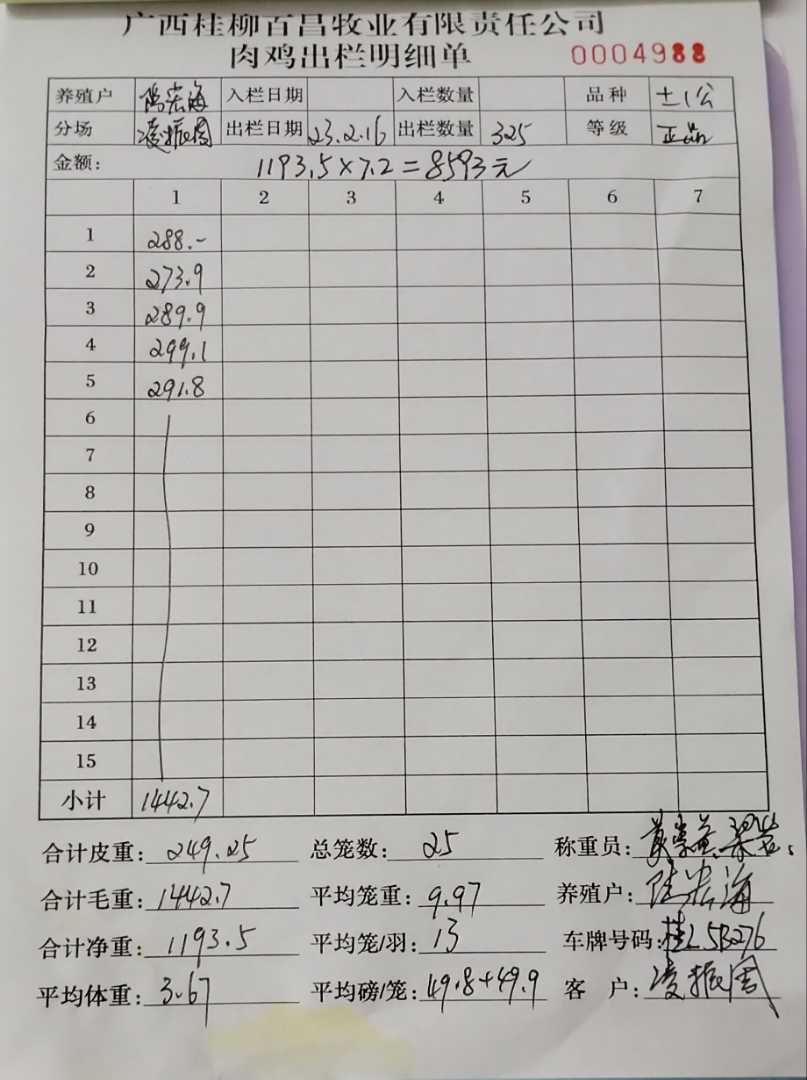 广西桂柳百昌牧业有限责任公司
肉鸡出栏明细单 0004988
养殖户 陆宏海 入栏日期 入栏数量 品种 土1公
分场 凌振周 出栏日期 23.2.16 出栏数量 325 等级 正品
金额: 1193.5×7.2=8593元
1 2 3 4 5 6 7
1 288.-
2 273.9
3 289.9
4 299.1
5 291.8
6
7
8
9
10
11
12
13
14
15
小计 1442.7
合计皮重: 249.25 总笼数: 25 称重员:
合计毛重: 1442.7 平均笼重: 9.97 养殖户: 陆宏海
合计净重: 1193.5 平均笼/羽: 13 车牌号码: 桂L5B276
平均体重: 3.67 平均磅/笼: 49.8+49.9 客 户: 凌振周